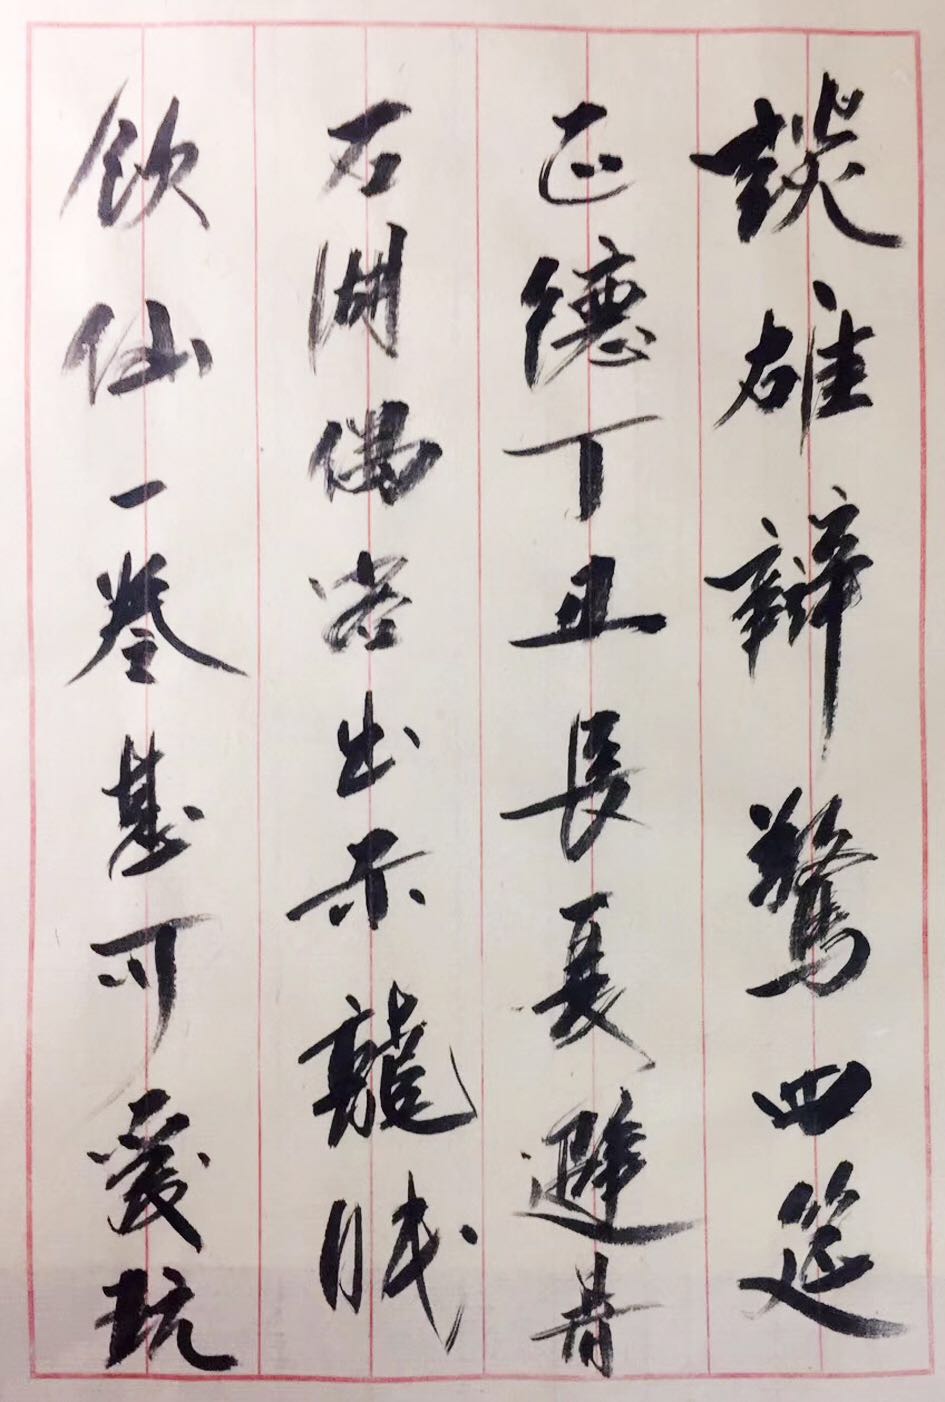 談雄辯驚四筵
正德丁丑長夏避暑
石湖偶客出示龍眠
飲仙一卷甚可愛玩